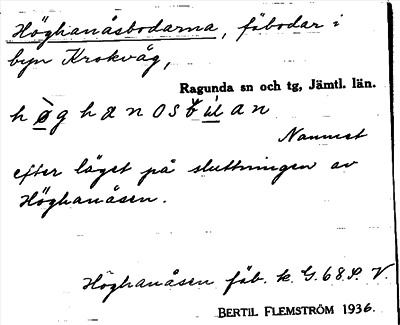 Höghanåsbodarna, fäbodar i
byn Krokvåg,
Ragunda sn och tg, Jämtl. län.
Namnet
efter läget på sluttningen av
Höghanåsen.
Höghanåsen fäb. k G. 68 S. V.
BERTIL FLEMSTRÖM 1936.